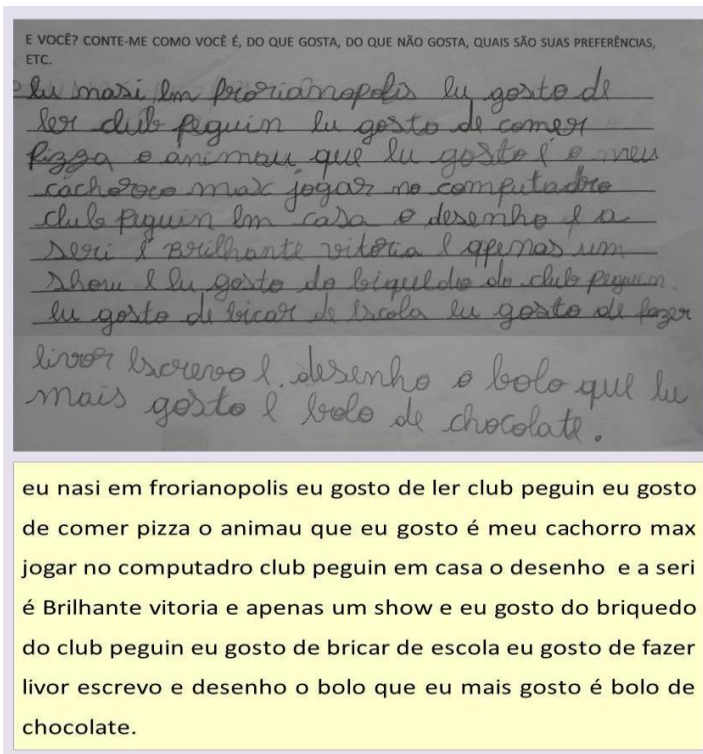 E VOCÊ? CONTE-ME COMO VOCÊ É, DO QUE GOSTA, DO QUE NÃO GOSTA, QUAIS SÃO SUAS PREFERÊNCIAS,
ETC.
eu masi em frorianopolis eu gosto de
ler club peguin eu gosto de comer
pizza o animau que eu gosto é o meu
cachorro max jogar no computadro
club peguin em casa o desenho e a
seri é Brilhante vitoria e apenas um
show e eu gosto do do club peguin
eu gosto de bicar de escola eu gosto de fazer
livor escrevo e. desenho o bolo que eu
mais gosto é bolo de chocolate.
eu nasi em frorianopolis eu gosto de ler club peguin eu gosto
de comer pizza o animau que eu gosto é meu cachorro max
jogar no computadro club peguin em casa o desenho e a seri
é Brilhante vitoria e apenas um show e eu gosto do briquedo
do club peguin eu gosto de bricar de escola eu gosto de fazer
livor escrevo e desenho o bolo que eu mais gosto é bolo de
chocolate.